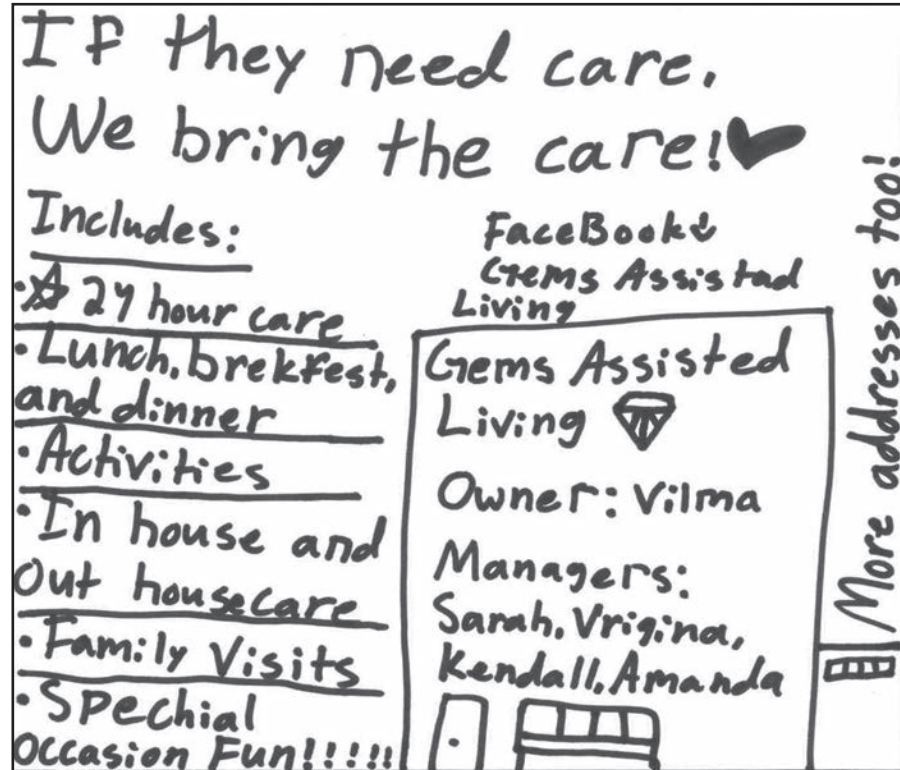 If they need care,
We bring the care!
Includes:
24 hour care
Lunch, brekfest,
and dinner
Activities
In house and
Out housecare
Family Visits
Spechial
Occasion Fun!!!!!
FaceBook
Gems Assistad
Living
Gems Assisted
Living
Owner: Vilma
Managers:
Sarah, Vrigina,
Kendall, Amanda
More addresses too!